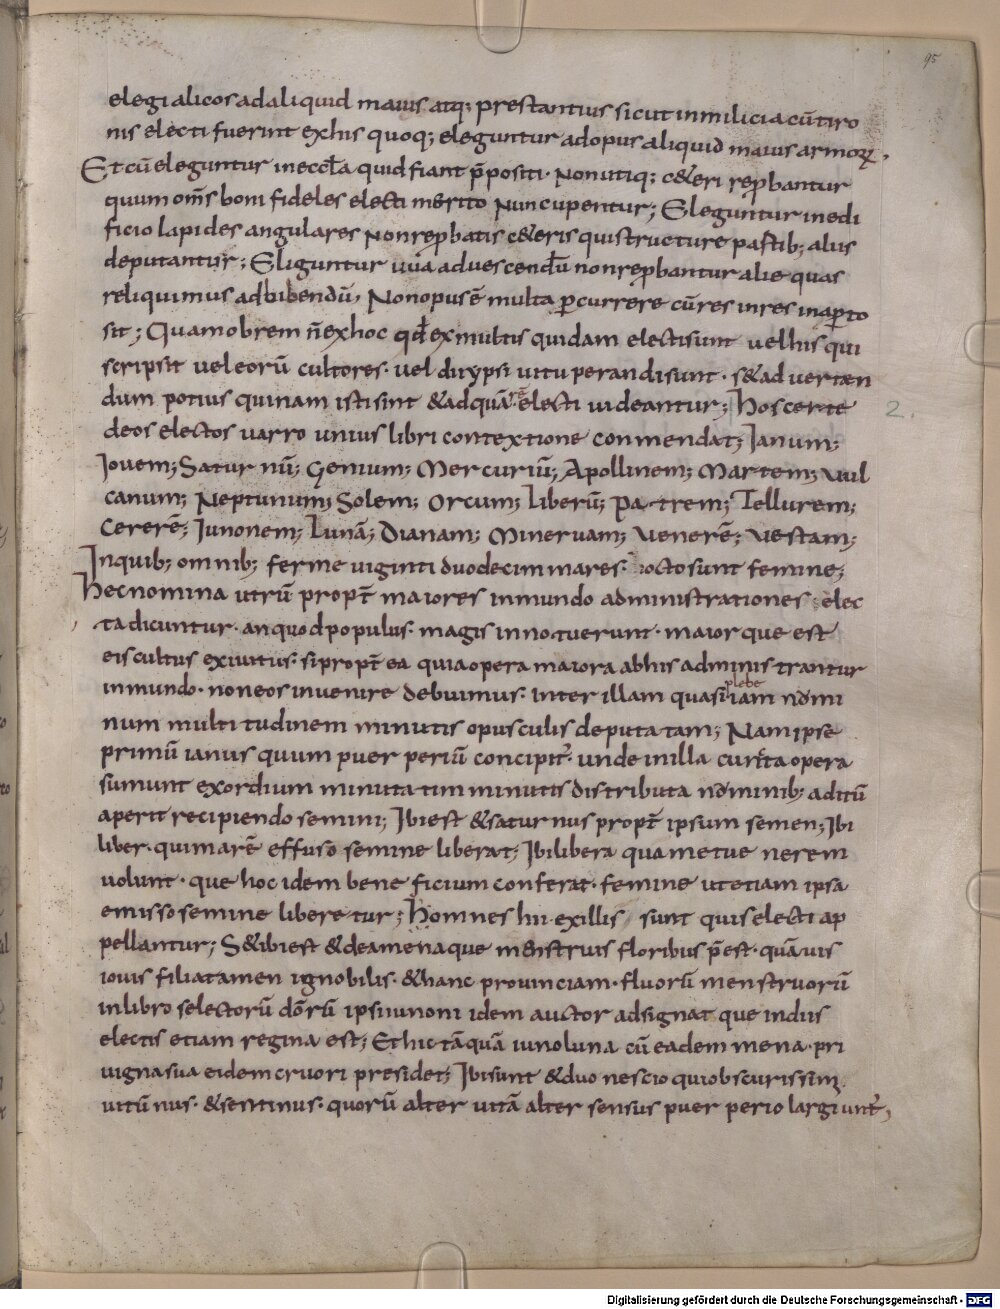 95
elegi alicos adaliquid maius atq; prestantius sicut inmilicia cū tiro
nis electi fuerint exhis quoq; eleguntur adopus aliquid maius armorꝝ.
Et cū eleguntur ineccl̄a quid fiant p̄positi· Nonutiq; c&eri reꝓbantur
quum om̄s boni fideles electi merito Nuncupentur; Eleguntur inedi
ficio lapides angulares Nonreꝓbatis c&eris quistructure partib; aliis
deputantur; Eliguntur uua aduescendū nonreꝓbantur alie quas
reliquimus adbibendū, Nonopusē multa ꝑcurrere cū res inres inaꝑto
sit; Quamobrem n̄ exhoc qđ exmultis quidam electisunt uelhis qui
scripsit uel eorū cultores· uel diiypsi uituperandisunt· s&aduerten
dum potius quinam istisint &adquā rē electi uideantur; hos certe
2.
deos electos uarro unius libri contextione conmendat; Ianum;
Iovem; Saturnū; Genium; Mercuriū; Apollinem; Martem; Vul
canum; Neptunum; Solem; Orcum; Liberū; Patrem; Tellurem;
Cererē; Iunonem; Lunā; Dianam; Mineruam; Venerē; Vestam;
Inquib; omnib; ferme uiginti duodecim mares· octo sunt femine;
hec nomina utrū propt̄ maiores inmundo administrationes elec
ta dicuntur· anquod populus· magis innotuerunt· maiorque est
eis cultus exiuitus· sipropt̄ ea quia opera maiora abhis adminis trantur
inmundo· noneos inuenire debuimus· inter illam quasi plebeiam nōmi
num multitudinem minutis opusculis deputatam; Nam ipse
primū ianus quum puer periū concipit̄· unde inilla cuncta opera
sumunt exordium minutatim minutis distributa nōminib; aditū
aperit recipiendo semini; Ibi est &saturnus propt̄ ipsum semen; Ibi
liber· quimarē effuso semine liberat; Ibi libera quam et uenerem
uolunt· que hoc idem bene ficium conferat· femine ut etiam ipsa
emisso semine liberetur; homnes hii exillis sunt quiselecti ap
pellantur; S&ibi est &deamena que menstruis floribus p̄est· quāuis
iouis filia tamen ignobilis· &hanc prouinciam· fluorū menstruorū
inlibro selectorū dōrū ipsi iunoni idem auctor adsignat que indiis
electis etiam regina est; Et hic tāquā iuno luna cū eadem mena· pri
uigna sua eidem cruori presidet; Ibi sunt &duo nescio qui obscurissimi
uitūnus· &sentinus· quorū alter uitā alter sensus puer perio largiunt̄,
Digitalisierung gefördert durch die Deutsche Forschungsgemeinschaft - DFG